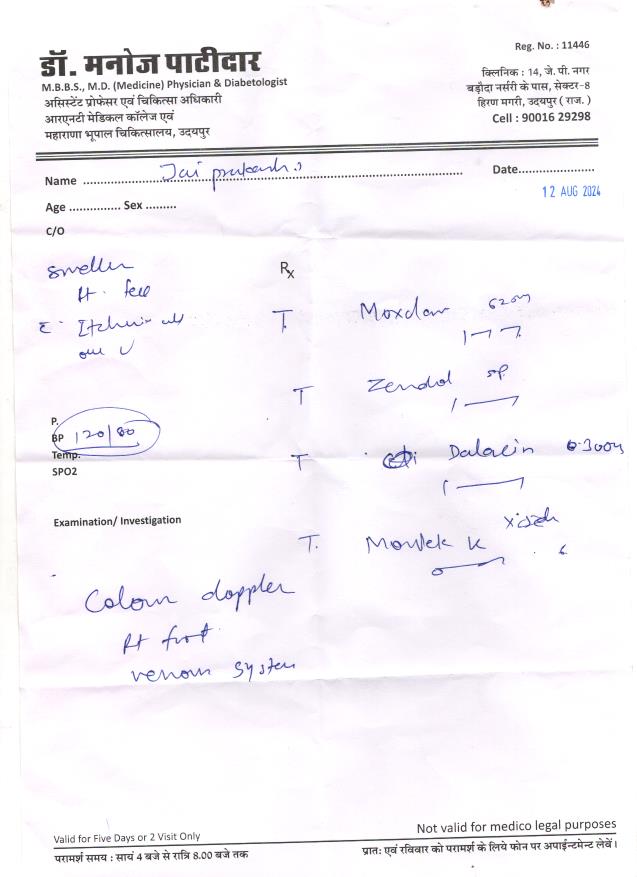 Reg. No. : 11446
डॉ. मनोज पाटीदार
M.B.B.S., M.D. (Medicine) Physician & Diabetologist
असिस्टेंट प्रोफेसर एवं चिकित्सा अधिकारी
आरएनटी मेडिकल कॉलेज एवं
महाराणा भूपाल चिकित्सालय, उदयपुर
क्लिनिक : 14, जे. पी. नगर
बड़ौदा नर्सरी के पास, सेक्टर-8
हिरण मगरी, उदयपुर ( राज. )
Cell : 90016 29298
Name Jai prakash
Date
12 AUG 2024
Age Sex
C/O
Rt.
Rx
T. Moxclav 625
T Zendol sp
P.
BP 120/80
Temp.
SPO2
T Dalacin 300
Examination/ Investigation
T. Montek
Colour doppler
Rt foot
venous system
Not valid for medico legal purposes
Valid for Five Days or 2 Visit Only
परामर्श समय : सायं 4 बजे से रात्रि 8.00 बजे तक
प्रातः एवं रविवार को परामर्श के लिये फोन पर अपाईन्टमेन्ट लेवें।